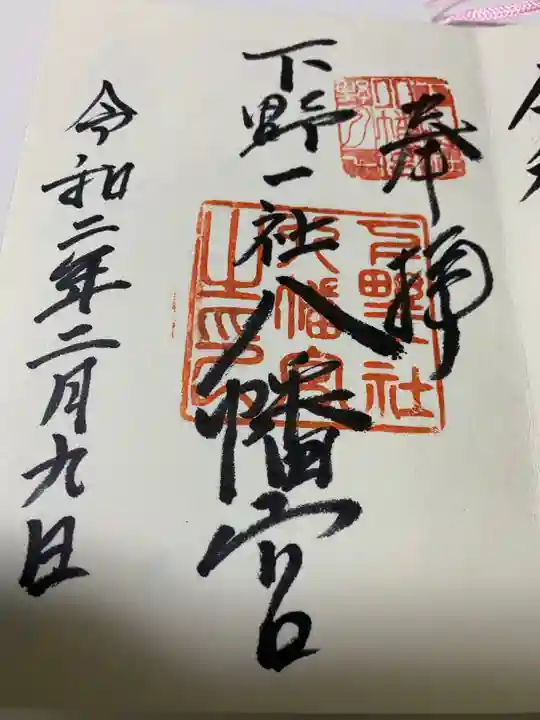 奉拝
下野一社八幡宮
令和二年二月九日
下野一社
八幡宮
之印